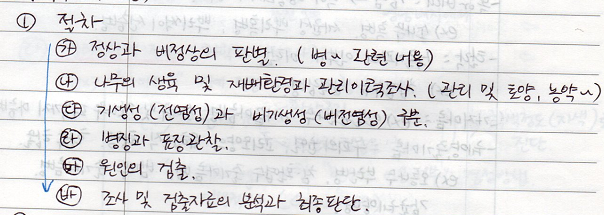 ① 절차
㉮ 정상과 비정상의 판별. (병~ 관련 내용)
㉯ 나무의 생육 및 재배환경과 관리이력조사. (관리 및 토양, 농약~)
㉰ 기생성(전염성)과 비기생성(비전염성) 구분.
㉱ 병징과 표징관찰.
㉲ 원인의 검출.
㉳ 조사 및 검출자료의 분석과 최종판단.